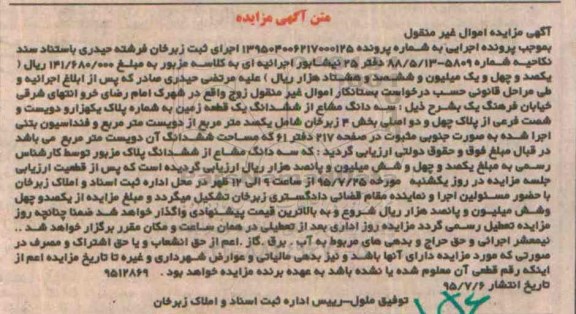 متن آگهی مزایده
آگهی مزایده اموال غیر منقول
بموجب پرونده اجرایی به شماره پرونده ۱۳۹۵۰۴۰۰۶۲۱۷۰۰۰۱۲۵ اجرای ثبت زبرخان فرشته حیدری باستناد سند
نکاحیه شماره ۵۸۰۹-۸۸/۵/۱۳ دفتر ۲۵ نیشابور اجرائیه ای به کلاسه مزبور به مبلغ ۱۴۱/۶۸۰/۰۰۰ ریال (
یکصد و چهل و یک میلیون و ششصد و هشتاد هزار ریال ) علیه مرتضی حیدری صادر که پس از ابلاغ اجرائیه و
طی مراحل قانونی حسب درخواست بستانکار اموال غیر منقول زوج واقع در شهرک امام رضای خرو انتهای شرقی
خیابان فرهنگ یک بشرح ذیل : سه دانگ مشاع از ششدانگ یک قطعه زمین به شماره پلاک یکهزارو دویست و
شصت فرعی از پلاک چهل و دو اصلی بخش ۴ زبرخان شامل یکصد متر مربع از دویست متر مربع و فنداسیون بتنی
اجرا شده به صورت جنوبی مثبوت در صفحه ۲۱۷ دفتر ۶۱ که مساحت ششدانگ آن دویست متر مربع می باشد
در قبال مبلغ فوق و حقوق دولتی ارزیابی گردید : که سه دانگ مشاع از ششدانگ پلاک مزبور توسط کارشناس
رسمی به مبلغ یکصد و چهل و شش میلیون و پانصد هزار ریال ارزیابی گردیده است که پس از قطعیت ارزیابی
جلسه مزایده در روز یکشنبه مورخه ۹۵/۷/۲۵ از ساعت ۹ الی ۱۲ ظهر در محل اداره ثبت اسناد و املاک زبرخان
با حضور مسئولین اجرا و نماینده مقام قضائی دادگستری زبرخان تشکیل میگردد و مبلغ مزایده از یکصدو چهل
وشش میلیون و پانصد هزار ریال شروع و به بالاترین قیمت پیشنهادی واگذار خواهد شد ضمنا چنانچه روز
مزایده تعطیل رسمی گردد مزایده روز اداری بعد از تعطیلی در همان ساعت و مکان مقرر برگزار خواهد شد ..
نیمعشر اجرائی و حق حراج و بدهی های مربوط به آب . برق .گاز .اعم از حق انشعاب و یا حق اشتراک و مصرف در
صورتی که مورد مزایده دارای آنها باشد و نیز بدهی مالیاتی و عوارض شهرداری و غیره تا تاریخ مزایده اعم از
اینکه رقم قطعی آن معلوم شده یا نشده باشد به عهده برنده مزایده خواهد بود . ۹۵۱۲۸۶۹
تاریخ انتشار ۹۵/۷/۶
توفیق ملول-رییس اداره ثبت اسناد و املاک زبرخان